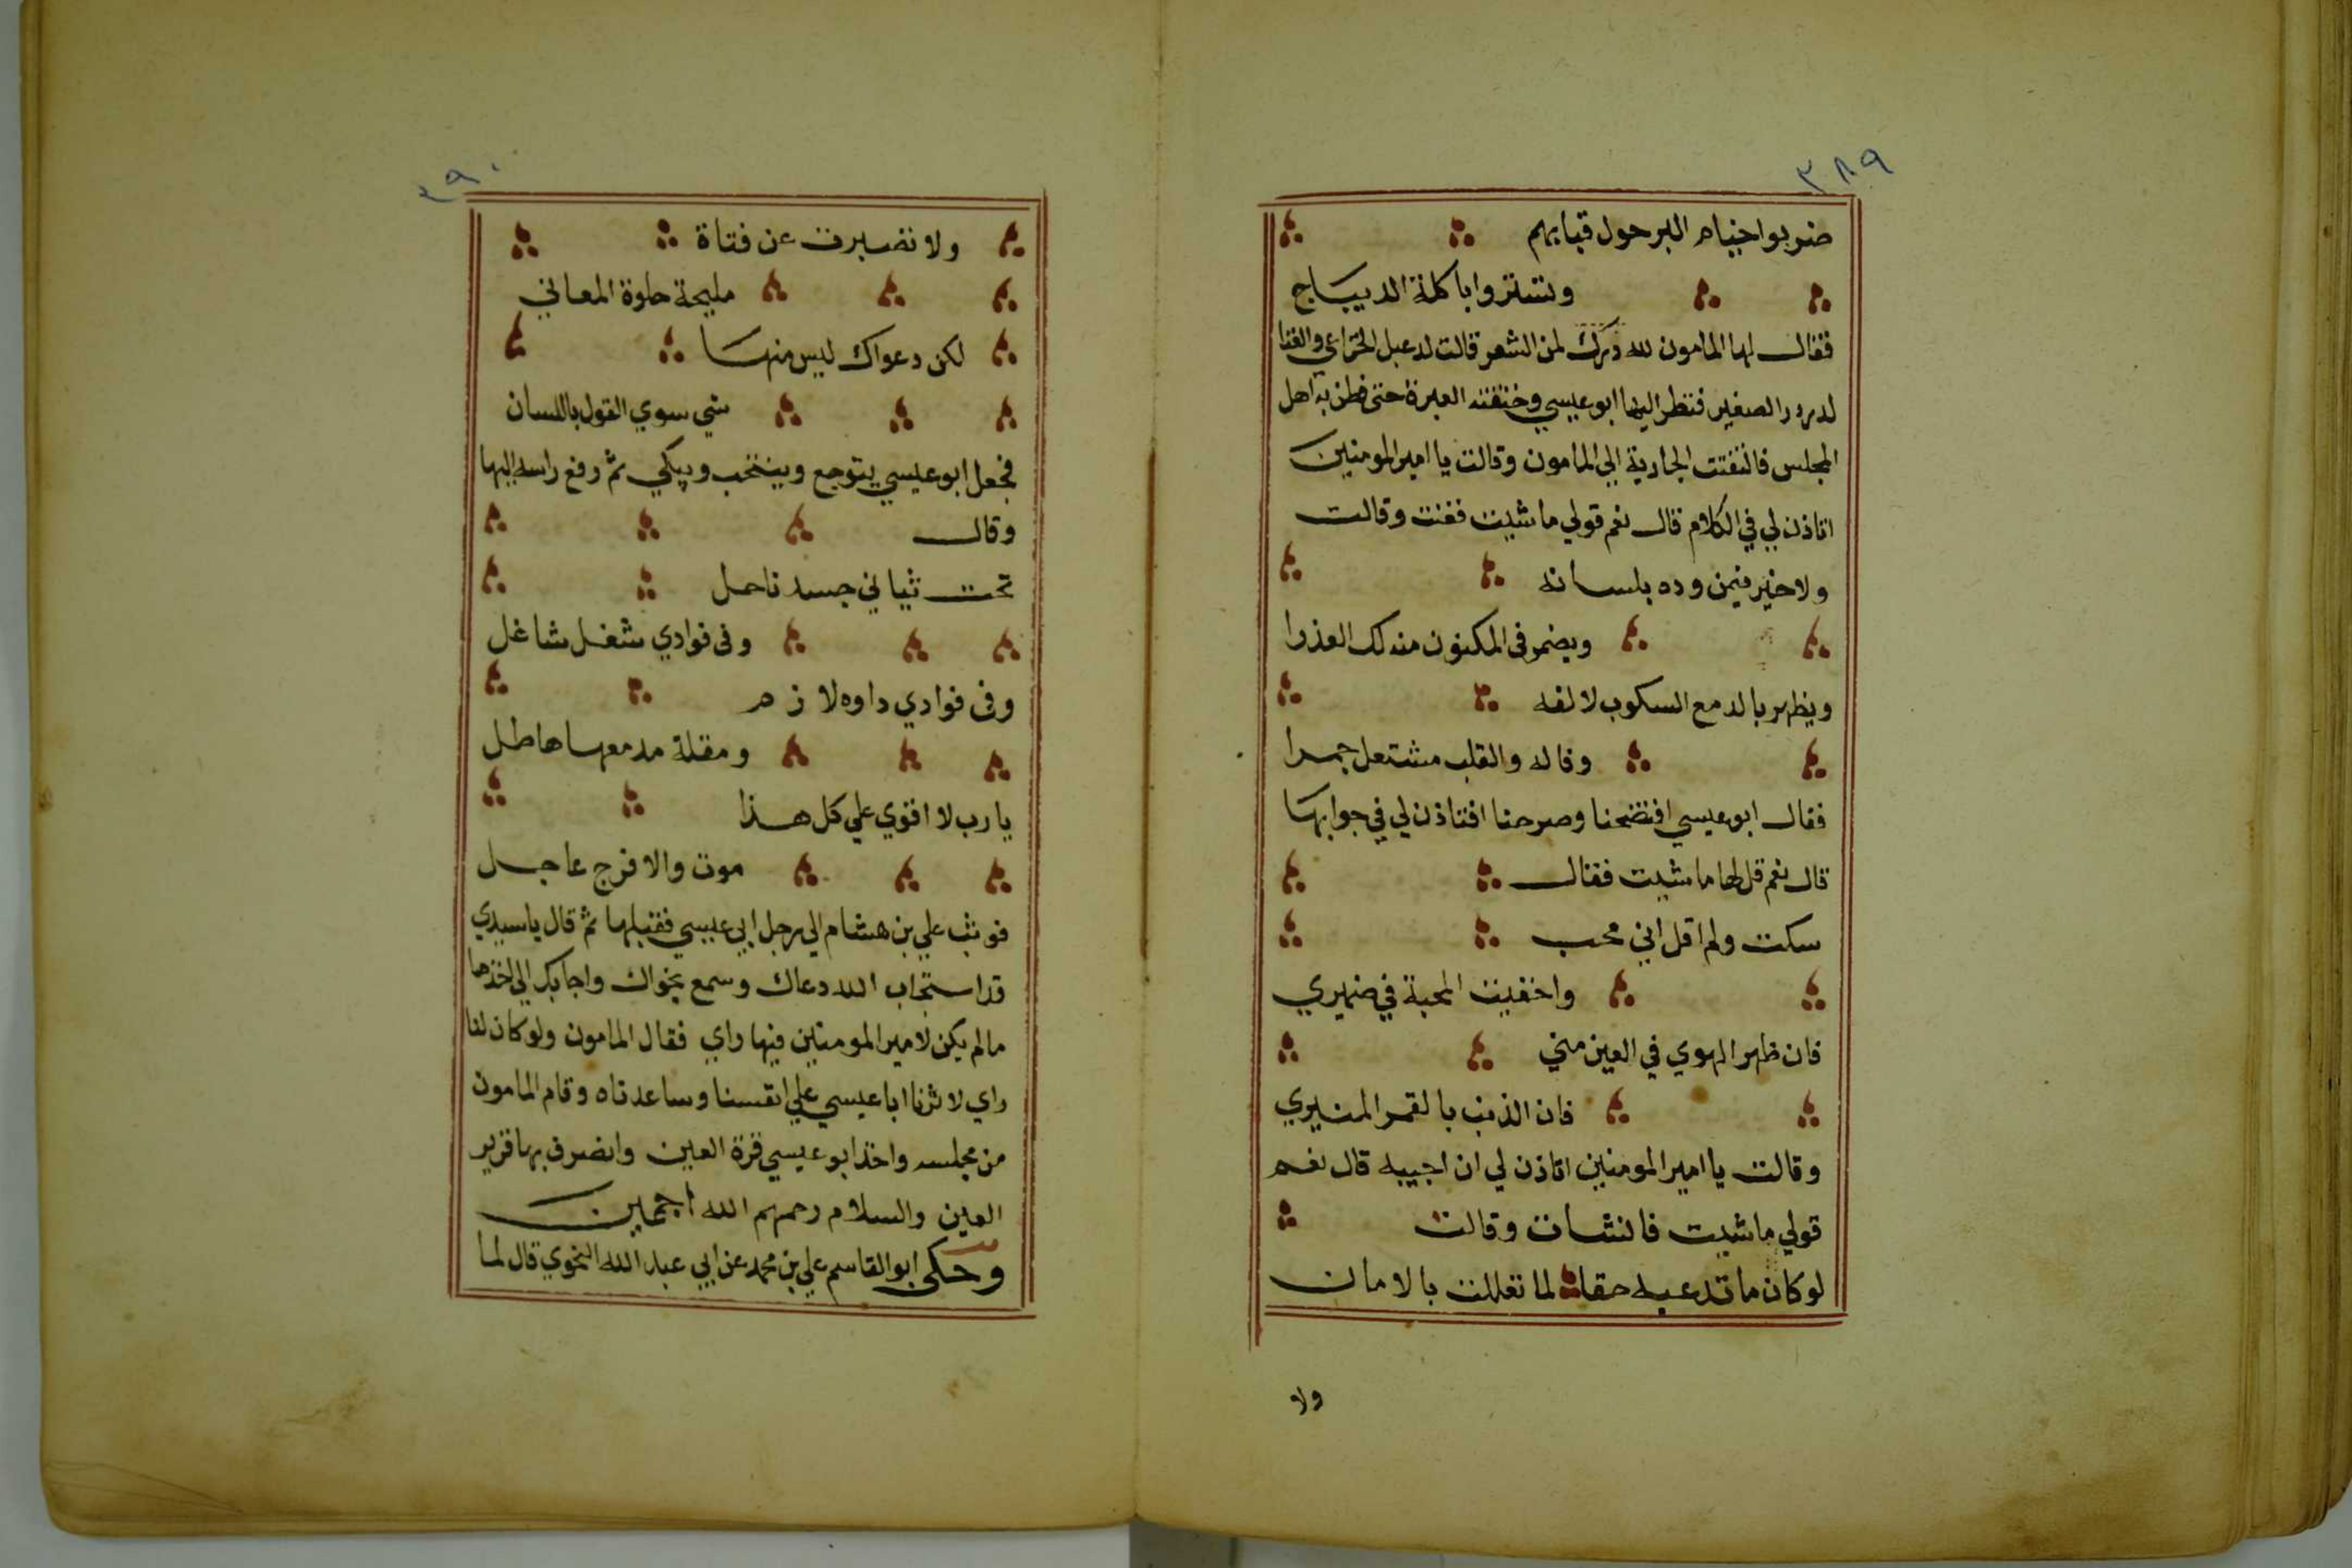 ٣٨٩
ضربوا خيام البر حول قبابهم
وتستروا باكلة الديباج
فقال لها المامون لله درك لمن الشعر قالت لدعبل الخزاعي والغنا
لدرور الصغير فنظر اليها ابو عيسي وخنقته العبرة حتى فطن به اهل
المجلس فالتفتت الجارية الي المامون وقالت يا امير المومنين
اتاذن لي في الكلام قال نعم قولي ما شيت فغنت وقالت
ولا خير فيمن وده بلسانه
ويضمر في المكنون منه لك العذرا
ويظهر بالدمع السكوب لالفه
وقاله والقلب مشتعل جمرا
فقال ابو عيسي افتضحنا وصرحنا افتاذن لي في جوابها
قال نعم قل لها ما شيت فقال
سكت ولم اقل اني محب
واخفيت المحبة في ضميري
فان ظهر الهوي في العين مني
فان الذنب بالقمر المنيري
وقالت يا امير المومنين اتاذن لي ان اجيبه قال نعم
قولي ما شيت فانشات وقالت
لو كان ما تدعيه حقا لما تعللت بالامان
ولا
٣٩٠
ولا تصبرت عن فتاة
مليحة حلوة المعاني
لكن دعواك ليس منها
شي سوي القول باللسان
فجعل ابو عيسي يتوجع وينتحب ويبكي ثم رفع راسه اليها
وقال
تحت ثيابي جسد ناحل
وفى فوادي شغل شاغل
وفى فوادي داوه لازم
ومقلة مدمعها هاطل
يا رب لا اقوي علي كل هذا
موت والا فرج عاجل
فوثب علي بن هشام الي رجل ابي عيسي فقبلها ثم قال يا سيدي
قد استجاب الله دعاك وسمع نجواك واجابك الي اخذها
ما لم يكن لامير المومنين فيها راي فقال المامون ولو كان لنا
راي لاثرنا ابا عيسي علي انفسنا وساعدناه وقام المامون
من مجلسه واخذ ابو عيسي قرة العين وانصرف بها قرير
العين والسلام رحمهم الله اجمعين
وحكى ابو القاسم علي بن محمد عن ابي عبد الله النحوي قال لما